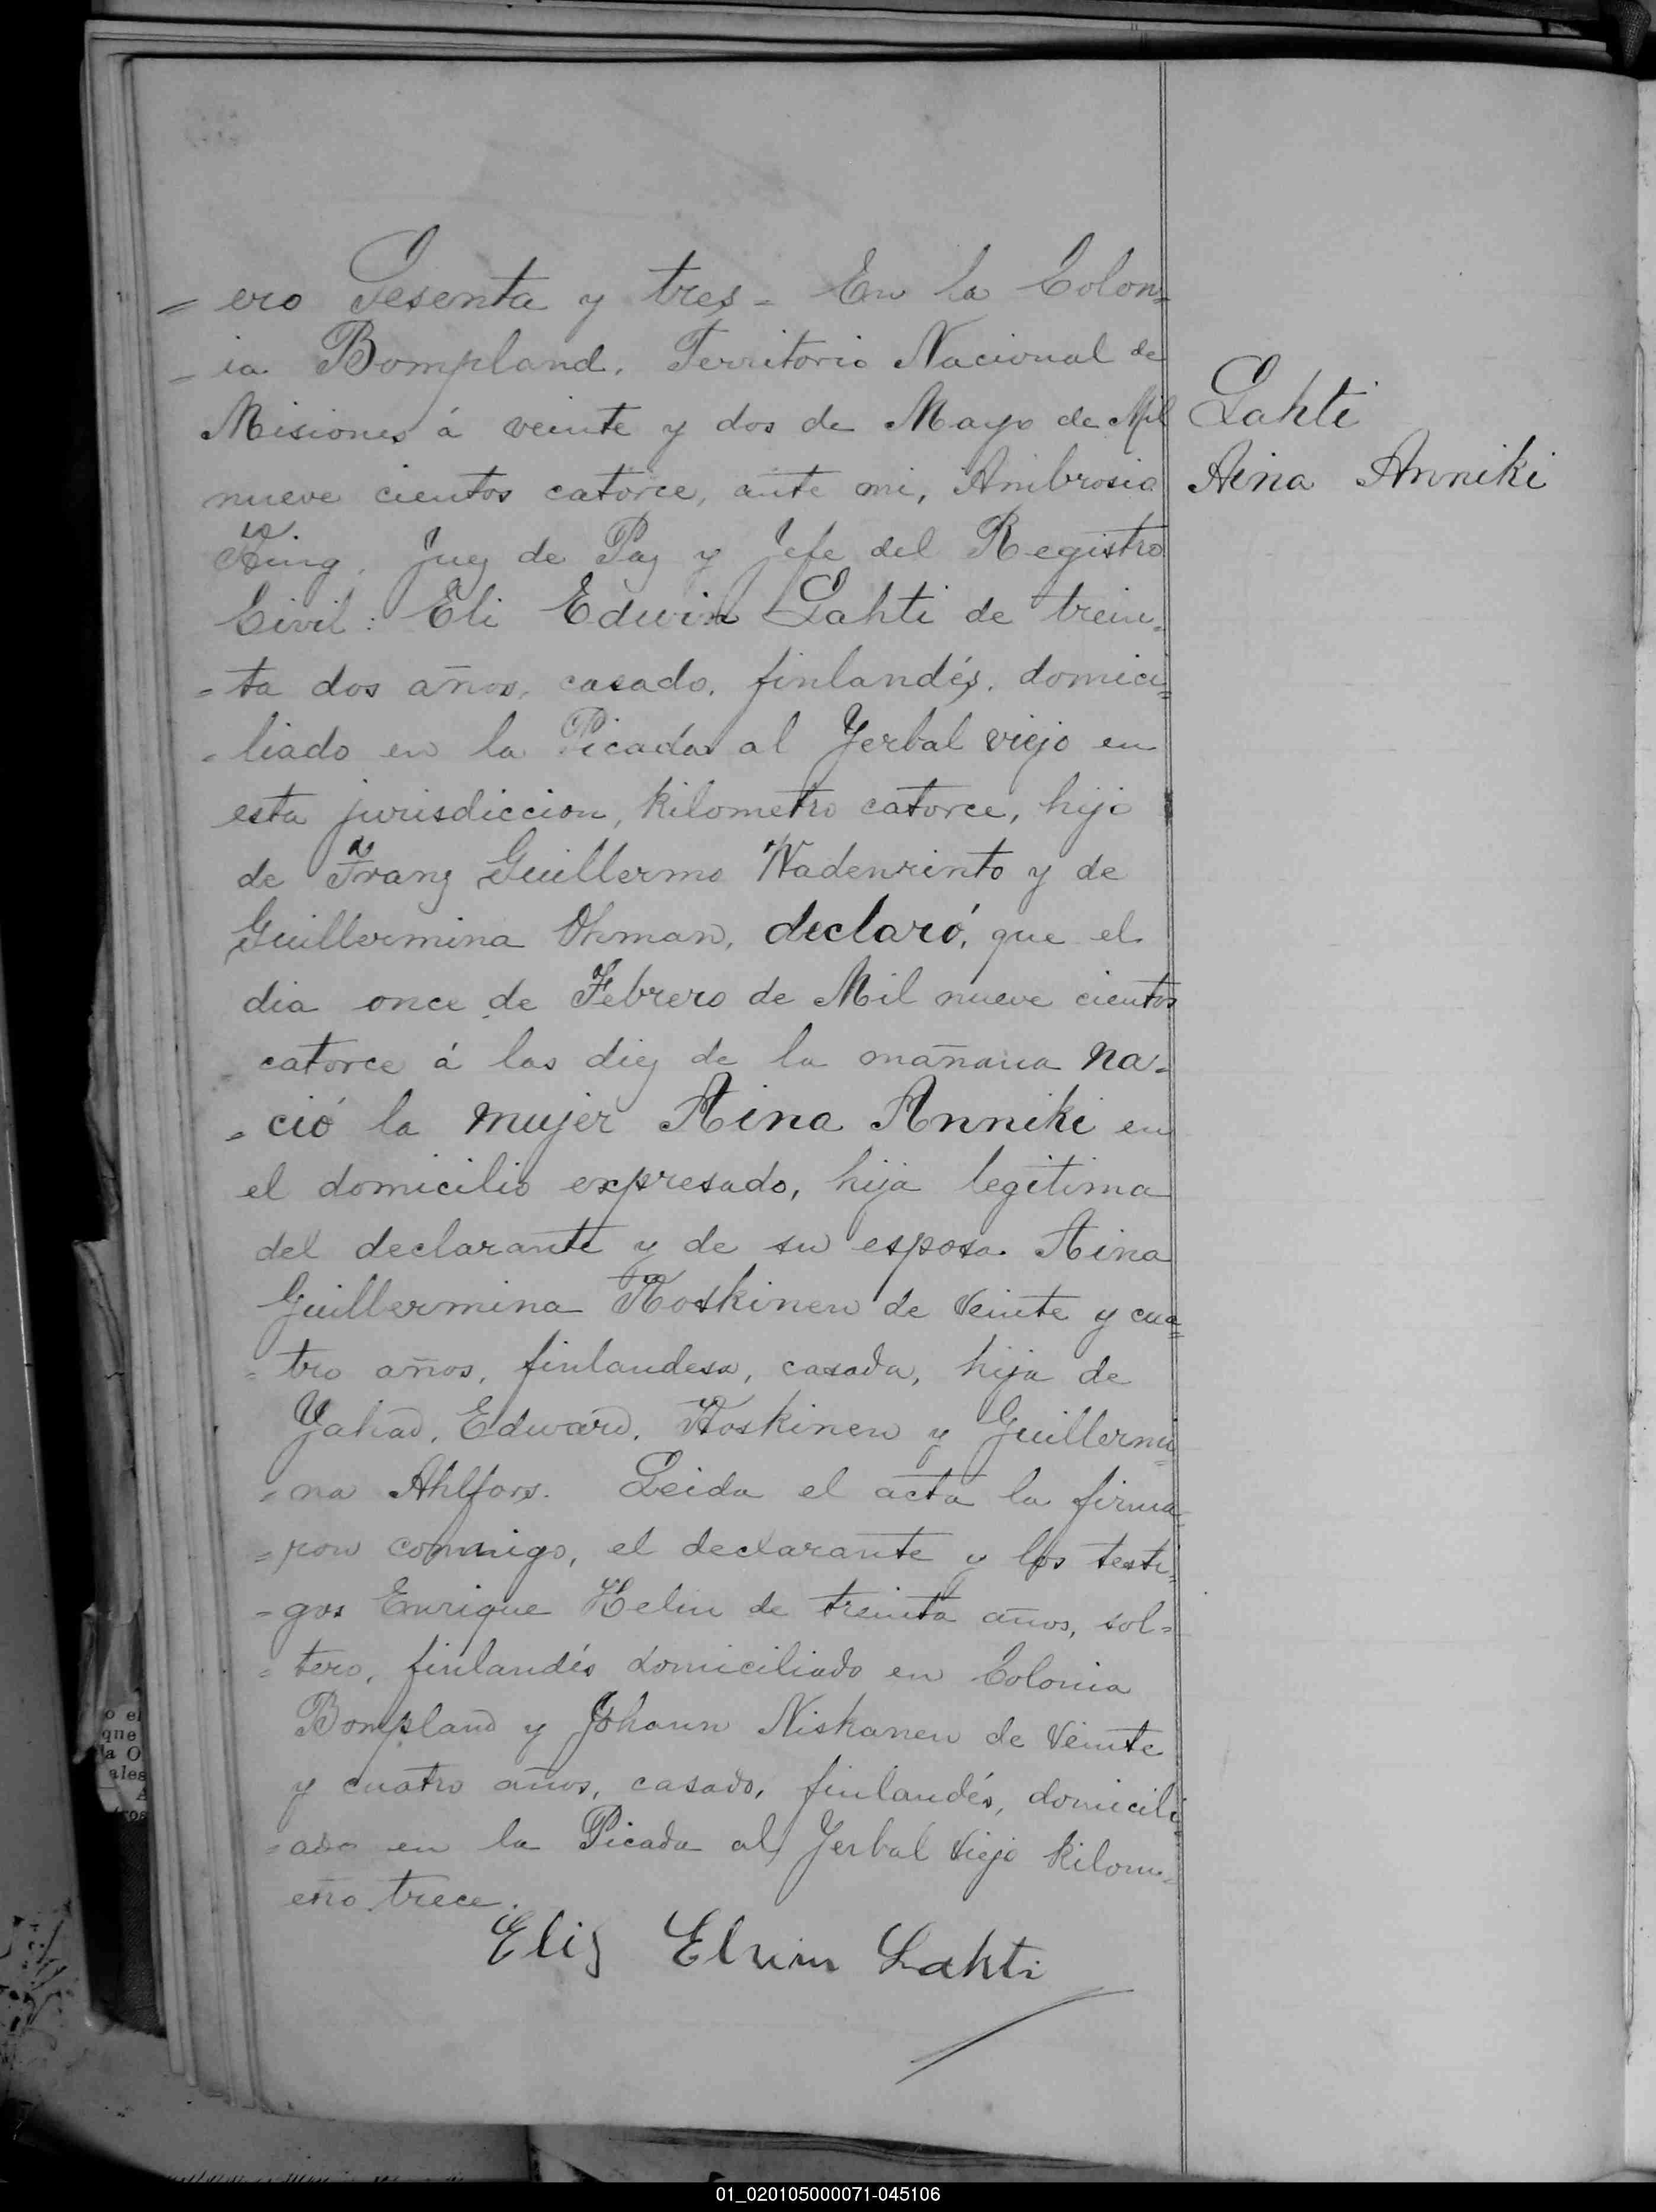 = ero Sesenta y tres = En la Colon=
= ia Bompland, Territorio Nacional de
Misiones á veinte y dos de Mayo de Mil
nueve cientos catorce, ante mi, Ambrosio
King, Juez de Paz y Jefe del Registro
Civil: Eli Edwin Lahti de trein=
= ta dos años, casado, finlandés, domici=
= liado en la Picada al Yerbal viejo en
esta jurisdiccion, kilometro catorce, hijo
de Franz Guillermo Wadenrinto y de
Guillermina Ohman, declaró, que el
dia once de Febrero de Mil nueve cientos
catorce á las diez de la mañana na=
= ció la mujer Aina Anniki en
el domicilio expresado, hija legitima
del declarante y de su esposa Aina
Guillermina Koskinen de veinte y cua=
= tro años, finlandesa, casada, hija de
Edward, Koskinen y Guillermi=
= na Ahlfors. Leida el acta la firma=
= ron conmigo, el declarante y los testi=
= gos Enrique Helin de treinta años, sol=
= tero, finlandés domiciliado en Colonia
Bompland y Johann Niskanen de veinte
y cuatro años, casado, finlandés, domicili=
= ado en la Picada al Yerbal viejo kilom=
etro trece.
Lahti
Aina Anniki
Elis Elvin Lahti
o el
que
la O
ales
A
tros
01_020105000071-045106